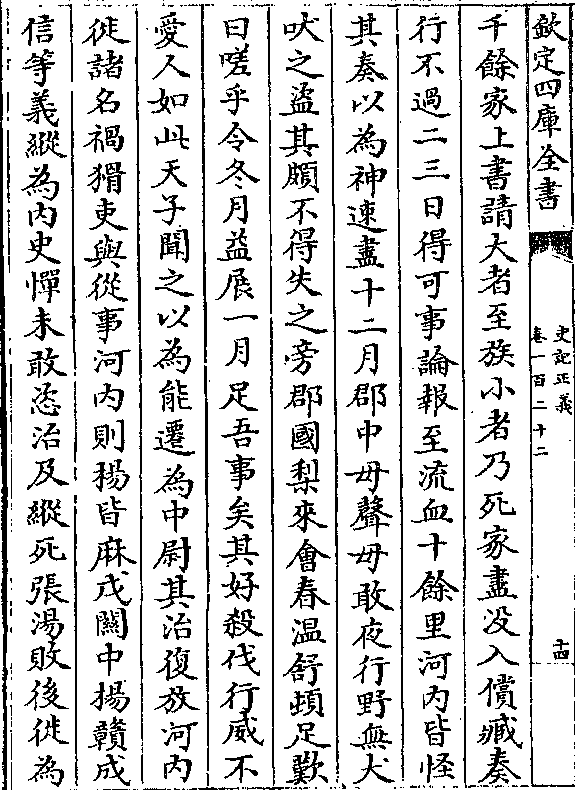 欽定四庫全書
史記正義
卷一百二十二
十四
千餘家上書請大者至族小者乃死家盡没入償臧奏
行不過二三日得可事論報至流血十餘里河内皆怪
其奏以為神速盡十二月郡中毋聲毋敢夜行野無犬
吠之盜其頗不得失之旁郡國梨來會春温舒頓足歎
曰嗟乎令冬月益展一月足吾事矣其好殺伐行威不
愛人如此天子聞之以為能遷為中尉其治復放河内
徙諸名禍猾吏與從事河内則楊皆麻戊關中揚贛成
信等義縱為内史憚未敢恣治及縱死張湯敗後徙為